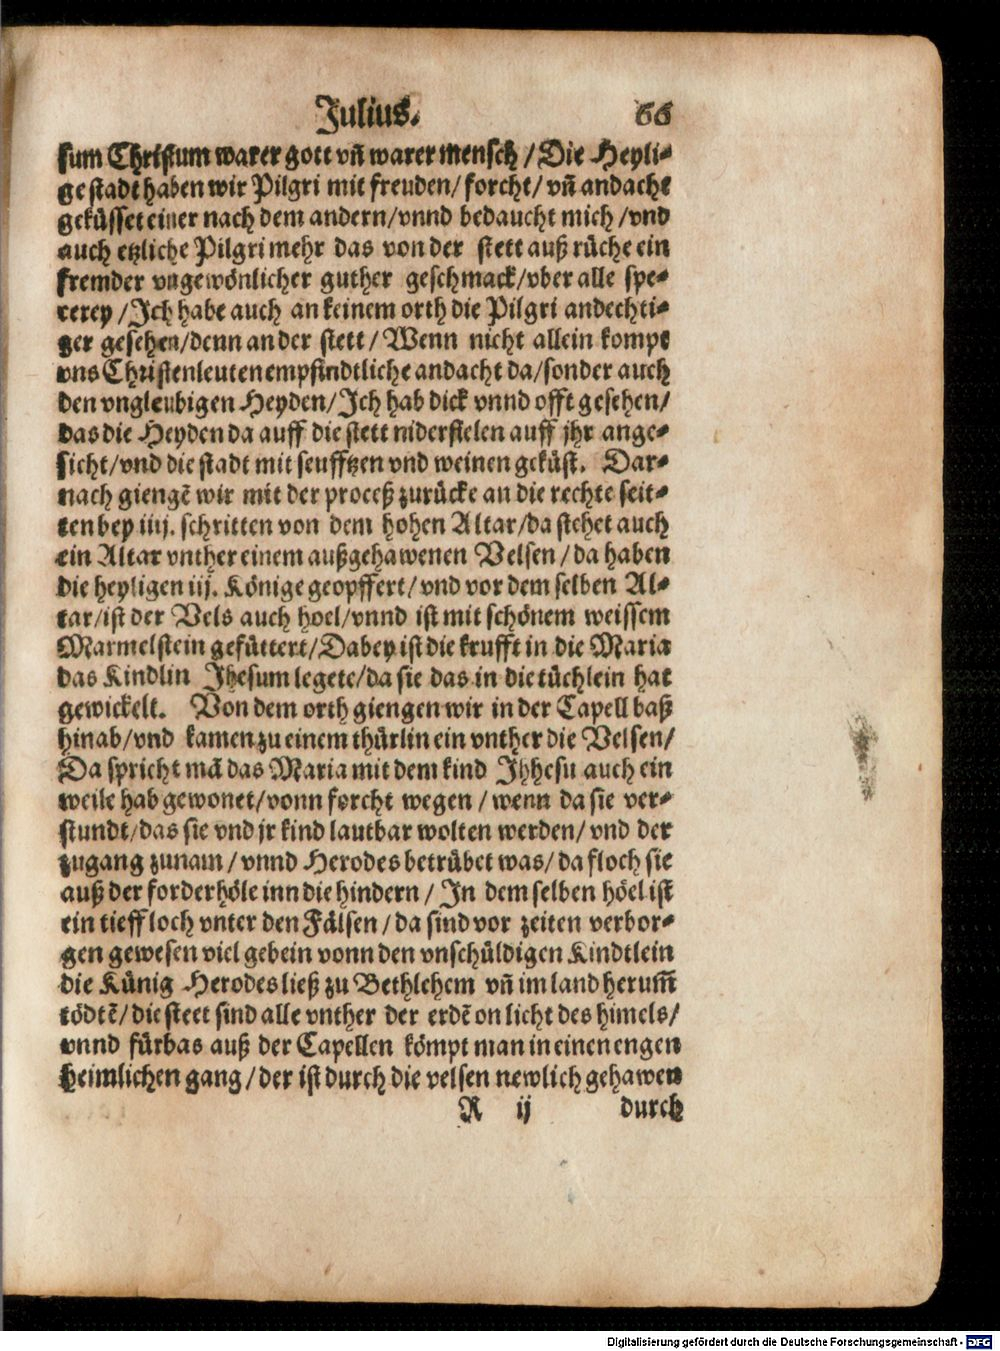 Julius. 66
sum Christum warer gott vñ warer mensch / Die Heyli⸗
ge stadt haben wir Pilgri mit freuden / forcht / vñ andacht
geküsset einer nach dem andern / vnnd bedaucht mich / vnd
auch etzliche Pilgri mehr das von der stett auß rüche ein
fremder vngewönlicher guther geschmack / vber alle spe⸗
cerey / Jch habe auch an keinem orth die Pilgri andechti⸗
ger gesehen / denn an der stett / Wenn nicht allein kompt
vns Christenleuten empfindtliche andacht da / sonder auch
den vngleubigen Heyden / Jch hab dick vnnd offt gesehen /
das die Heyden da auff die stett niderfielen auff jhr ange⸗
sicht / vnd die stadt mit seufftzen vnd weinen geküst. Dar⸗
nach giengẽ wir mit der proceß zurücke an die rechte seit⸗
ten bey iiij. schritten von dem hohen Altar / da stehet auch
ein Altar vnther einem außgehawenen Velsen / da haben
die heyligen iij. Könige geopffert / vnd vor dem selben Al⸗
tar / ist der Vels auch hoel / vnnd ist mit schönem weissem
Marmelstein gefüttert / Dabey ist die krufft in die Maria
das Kindlin Jhesum legete / da sie das in die tüchlein hat
gewickelt. Von dem orth giengen wir in der Capell baß
hinab / vnd kamen zu einem thürlin ein vnther die Velsen /
Da spricht mã das Maria mit dem kind Jhhesu auch ein
weile hab gewonet / vonn forcht wegen / wenn da sie ver⸗
stundt / das sie vnd jr kind lautbar wolten werden / vnd der
zugang zunam / vnnd Herodes betrübet was / da floch sie
auß der forderhöle inn die hindern / Jn dem selben höel ist
ein tieff loch vnter den Fälsen / da sind vor zeiten verbor⸗
gen gewesen viel gebein vonn den vnschüldigen Kindtlein
die Künig Herodes ließ zu Bethlehem vñ im land herum̃
tödtẽ / die steet sind alle vnther der erdẽ on licht des himels /
vnnd fürbas auß der Capellen kömpt man in einen engen
heimlichen gang / der ist durch die velsen newlich gehawen
R ij durch
Digitalisierung gefördert durch die Deutsche Forschungsgemeinschaft - DFG